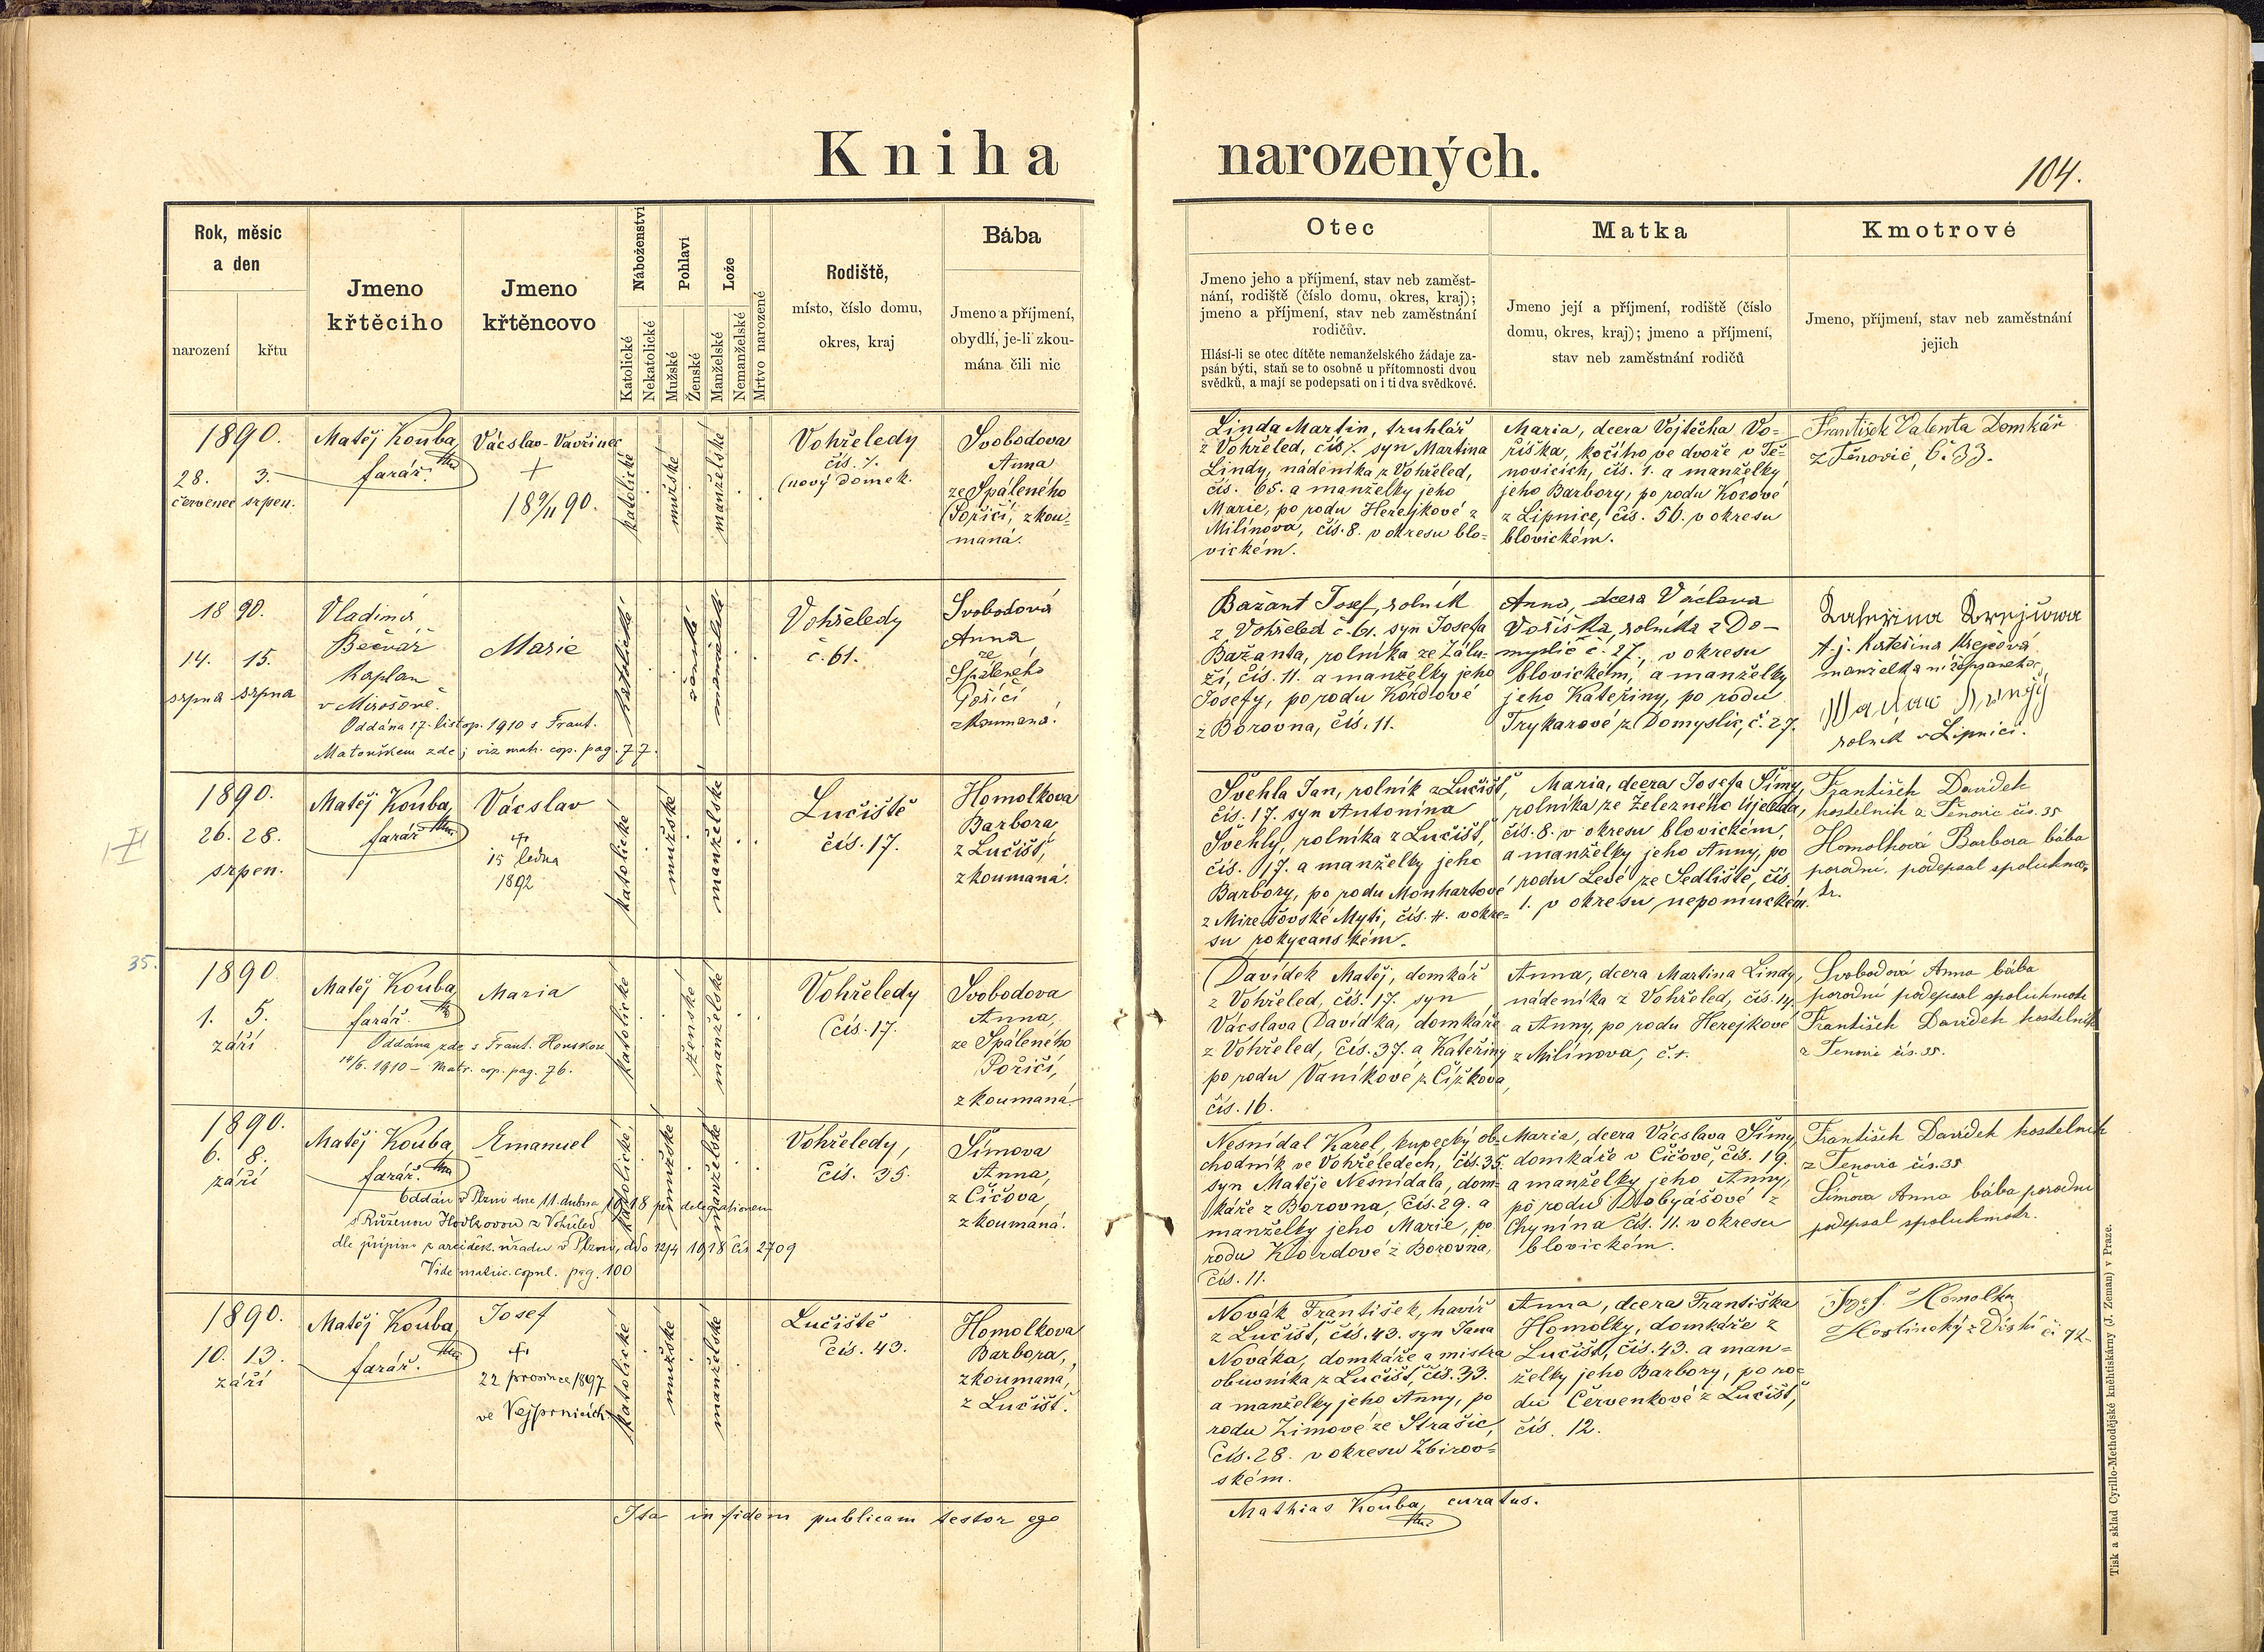 Kniha narozených.
104.
Rok, měsíc
a den
narození
křtu
Jmeno
křtěcího
Jmeno
křtěncovo
Náboženství
Katolické
Nekatolické
Pohlaví
Mužské
Ženské
Lože
Manželské
Nemanželské
Mrtvo narozené
Rodiště,
místo, číslo domu,
okres, kraj
Bába
Jmeno a příjmení,
obydlí, je-li zkou-
mána čili nic
Otec
Jmeno jeho a příjmení, stav neb zaměst-
nání, rodiště (číslo domu, okres, kraj);
jmeno a příjmení, stav neb zaměstnání
rodičův.
Hlásí-li se otec dítěte nemanželského žádaje za-
psán býti, staň se to osobně u přítomnosti dvou
svědků, a mají se podepsati on i ti dva svědkové.
Matka
Jmeno její a příjmení, rodiště (číslo
domu, okres, kraj); jmeno a příjmení,
stav neb zaměstnání rodičů
Kmotrové
Jmeno, příjmení, stav neb zaměstnání
jejich
1890.
28. 3.
červenec srpen.
Matěj Kouba,
farář.
Vácslav-Vavřinec
+
18 9/11 90.
katolické
mužské
manželské
Vohřeledy
čís.
(nový domek.
Svobodova
Anna
ze Spáleného
Poříčí, zkou-
maná.
Linda Martin, truhlář
z Vohřeled, čís. syn Martina
Lindy, nádeníka z Vohřeled,
čís. 65. a manželky jeho
Marie, po rodu Herejkové z
Milínova, čís. 8. v okresu blo-
vickém.
Maria, dcera Vojtěcha Vo-
říška, kočího ve dvoře v Tě-
novicích, čís. 1. a manželky
jeho Barbory, po rodu Kocové
z Lipnice, čís. 50. v okresu
blovickém.
František Valenta Domkář
z Těnovic, č. 33.
1890.
14. 15.
srpna srpna
Vladimír
Bečvář
kaplan
v Mirošově.
Marie
Oddána 17. listop. 1910 s Frant.
Matouškem zde; viz matr. cop. pag. 77.
katolické
ženské
manželské
Vohřeledy
č. 61.
Svobodová
Anna
ze
Spáleného
Poříčí
zkoumaná.
Bažant Josef, rolník
z Vohřeled č. 61. syn Josefa
Bažanta, rolníka ze Zálu-
ží, čís. 11. a manželky jeho
Josefy, po rodu Kordové
z Borovna, čís. 11.
Anna, dcera Václava
Voříška, rolníka z Do-
myslic č. 27., v okresu
blovickém, a manželky
jeho Kateřiny, po rodu
Trykarové z Domyslic, č. 27.
t. j. Kateřina Krejčová
manželka nížepsaného
rolník v Lipnici.
1890.
26. 28.
srpen.
Matěj Kouba,
farář.
Vácslav
+
15 ledna
1892
katolické
mužské
manželské
Lučiště
čís. 17.
Homolkova
Barbora
z Lučišť,
zkoumaná.
Švehla Jan, rolník z Lučišť,
čís. 17. syn Antonína
Švehly, rolníka z Lučišť,
čís. 17. a manželky jeho
Barbory, po rodu Monhartové
z Mirešovské Myti, čís. 4. v okre-
su rokycanském.
Maria, dcera Josefa Šímy,
rolníka ze Železného Újezda,
čís. 8. v okresu blovickém,
a manželky jeho Anny, po
rodu Levé ze Sedliště, čís.
1. v okresu nepomuckém.
František Davídek
kostelník z Těnovic čís. 35
Homolková Barbora bába
porodní, podepsal spolukmo-
tr.
35.
1890.
1. 5.
září
Matěj Kouba,
farář.
Maria
Oddána zde s Frant. Honskou
14/5. 1910 – Matr. cop. pag. 76.
katolické
ženské
manželské
Vohřeledy
čís. 17.
Svobodova
Anna,
ze Spáleného
Poříčí,
zkoumaná.
Davídek Matěj, domkář
z Vohřeled, čís. 17. syn
Vácslava Davídka, domkáře
z Vohřeled, čís. 37. a Kateřiny
po rodu Vaníkové z Čížkova,
čís. 16.
Anna, dcera Martina Lindy,
nádeníka z Vohřeled, čís. 14.
a Anny, po rodu Herejkové
z Milínova, č.
Svobodová Anna bába
porodní podepsal spolukmotr
František Davídek kostelník
z Tenovic čís. 35.
1890.
6. 8.
září
Matěj Kouba,
farář.
Emanuel
Oddán v Plzni dne 11. dubna 1918 per delegationem
s Růženou Hodlovou z Vohřeled
dle přípisu z arciděk. úřadu v Plzni, ddo 12/4 1918 čís 2709
Vide matric. copul. pag. 100
katolické
mužské
manželské
Vohřeledy,
čís. 35.
Šímova
Anna,
z Čičova,
zkoumaná.
Nesnídal Karel, kupecký ob-
chodník ve Vohřeledech, čís. 35.
syn Matěje Nesnídala, dom-
káře z Borovna, čís. 29. a
manželky jeho Marie, po
rodu Kordové z Borovna,
čís. 11.
Maria, dcera Vácslava Šímy,
domkáře v Čičově, čís. 19.
a manželky jeho Anny,
po rodu Drobyášové z
Chynína čís. 11. v okresu
blovickém.
František Davídek kostelník
z Tenovic čís. 35
Šímova Anna bába porodní
podepsal spolukmotr.
1890.
10. 13.
září
Matěj Kouba,
farář.
Josef
+
22 prosince 1897
ve Vejprnicích
katolické
mužské
manželské
Lučiště
čís. 43.
Homolkova
Barbora,
zkoumaná,
z Lučišť.
Novák František, havíř
z Lučišť, čís. 43. syn Jana
Nováka, domkáře a mistra
obuvníka z Lučišť, čís. 33.
a manželky jeho Anny, po
rodu Zimové ze Strašic,
čís. 28. v okresu Zbirov-
ském.
Anna, dcera Františka
Homolky, domkáře z
Lučišť, čís. 43. a man-
želky jeho Barbory, po ro-
du Červenkové z Lučišť,
čís. 12.
Josef Homolka
Hostinský z č. 72
Ita in fidem publicam testor ego
Mathias Kouba, curatus.
Tisk a sklad Cyrillo-Methodějské knihtiskárny (J. Zeman) v Praze.